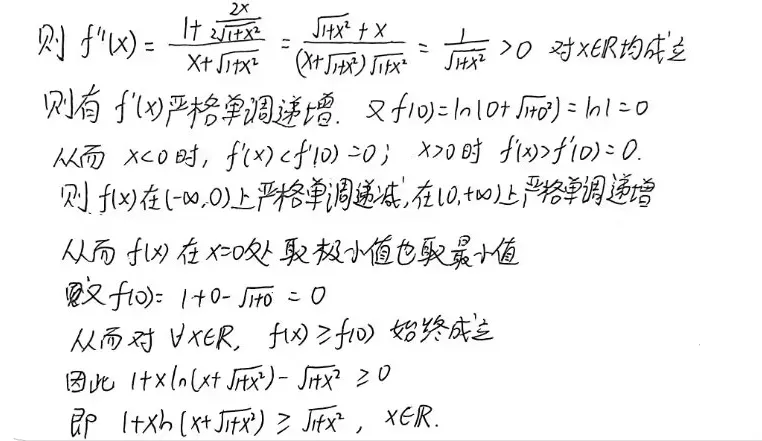 则 f''(x) = (1+2x/(2√(1+x²)))/(x+√(1+x²)) = (√(1+x²)+x)/((x+√(1+x²))√(1+x²)) = 1/√(1+x²) >0 对x∈R均成立
则有 f'(x)严格单调递增. 又f(0)=ln(0+√(1+0²))=ln1=0
从而 x<0时, f'(x)<f'(0)=0; x>0时 f'(x)>f'(0)=0.
则 f(x)在(-∞,0)上严格单调递减,在(0,+∞)上严格单调递增
从而 f(x)在x=0处取极小值也取最小值
又f(0)= 1+0-√(1+0) = 0
从而对 ∀x∈R, f(x)≥f(0) 始终成立
因此 1+xln(x+√(1+x²))-√(1+x²) ≥0
即 1+xln(x+√(1+x²)) ≥ √(1+x²), x∈R.